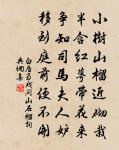 小樹山榴近砌栽
半含紅萼帶花來
爭知司馬夫人妒
移到庭前便不開
白居易戲問山石榴